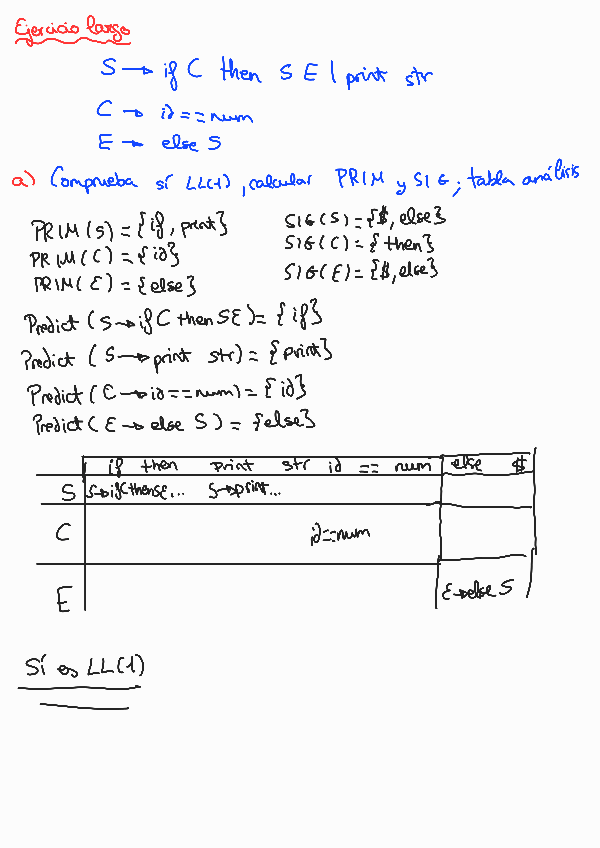 Ejercicio largo
S → if C then S E | print str
C → id == num
E → else S
a) Comprueba si LL(1), calcular PRIM y SIG; tabla análisis
PRIM(S) = {if, print} SIG(S) = {$, else}
PRIM(C) = {id} SIG(C) = {then}
PRIM(E) = {else} SIG(E) = {$, else}
Predict (S → if C then SE) = {if}
Predict (S → print str) = {print}
Predict (C → id == num) = {id}
Predict (E → else S) = {else}
if then print str id == num else $
S S→ifCthenSE... S→print...
C id==num
E E→else S
Sí es LL(1)